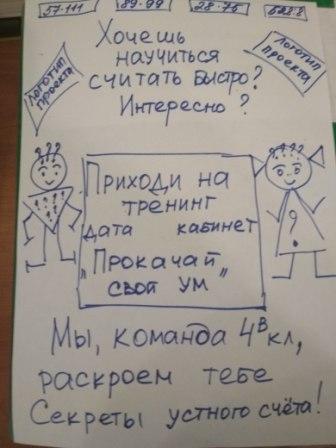 57·111 89·99 28·75 522:2
Хочешь
научиться
считать быстро?
Интересно?
ЛОГОТИП
ПРОЕКТА
ЛОГОТИП
ПРОЕКТА
Приходи на
тренинг
дата кабинет
„Прокачай
свой ум"
Мы, команда 4в кл,
раскроем тебе
Секреты устного счёта!